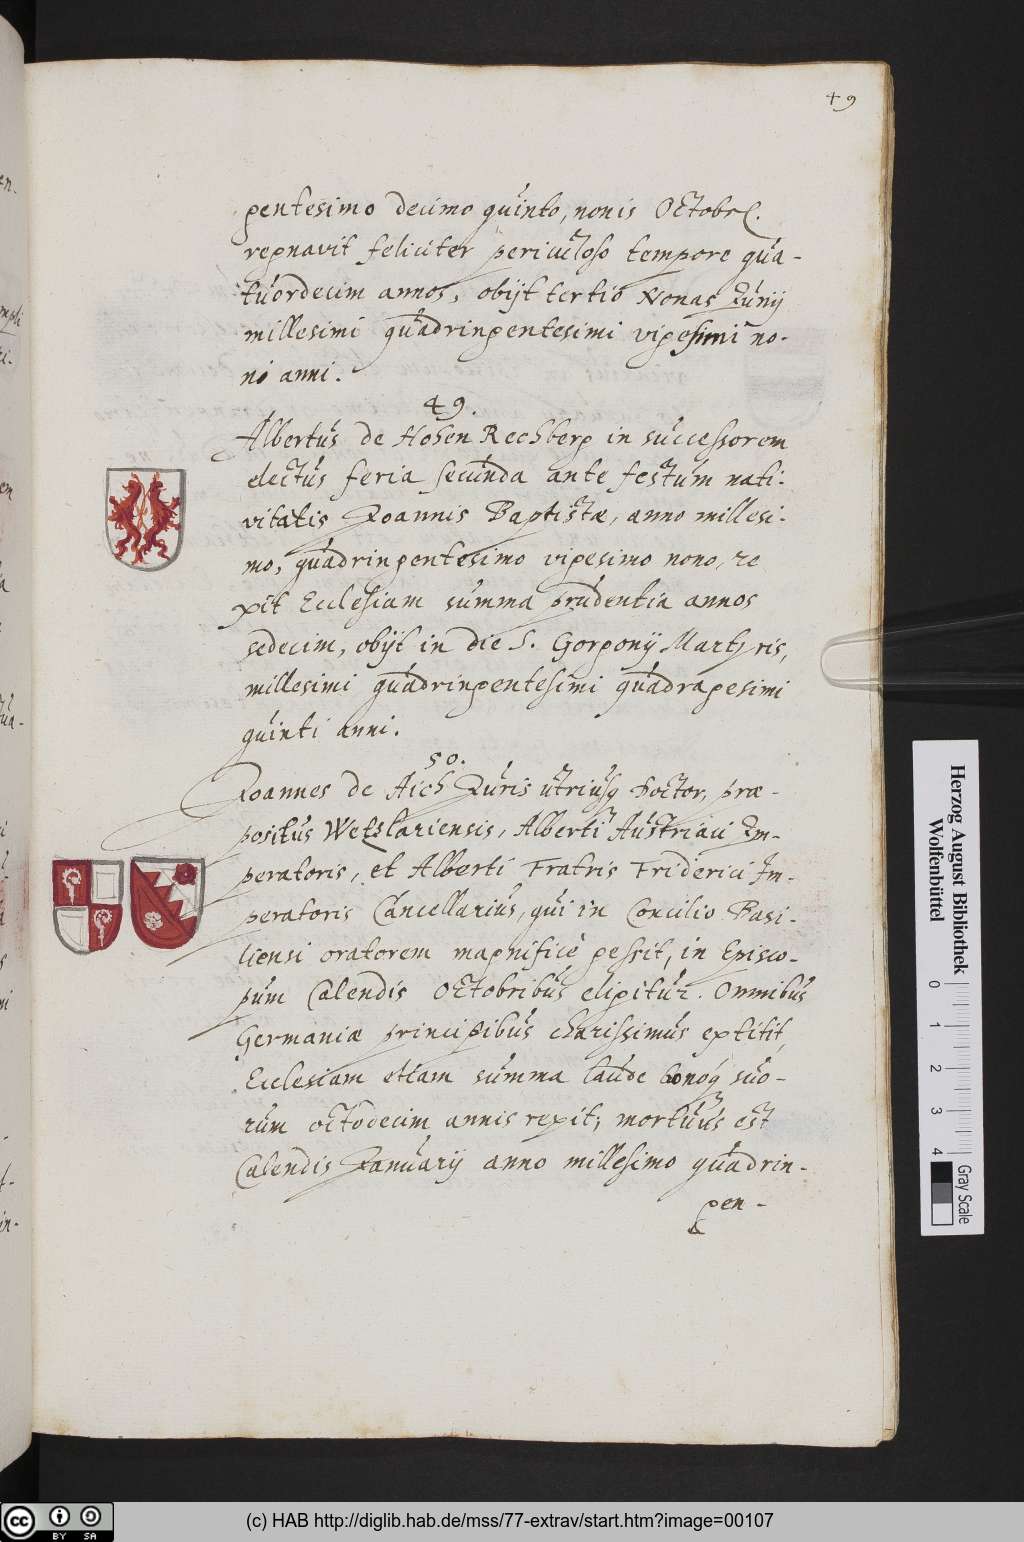 49
gentesimo decimo quinto, nonis Octobr.
regnavit feliciter periculoso tempore qua-
tuordecim annos, obijt tertio Nonas Junij
millesimi quadringentesimi vigesimi no-
ni anni.
49.
Albertus de Hohen Rechberg in successorem
electus feria secunda ante festum nati-
vitatis Joannis Baptistæ, anno millesi-
mo, quadringentesimo vigesimo nono, re
xit Ecclesiam summa prudentia annos
sedecim, obijt in die S. Gorgonij Martyris,
millesimi quadringentesimi quadragesimi
quinti anni.
50.
Joannes de Aich Juris utriusq Doctor, præ-
positus Wetslariensis, Alberti Austriaci Im-
peratoris, et Alberti Fratris Friderici Im-
peratoris Cancellarius, qui in Concilio Basi-
liensi oratorem magnificè gessit, in Episco-
pum Calendis Octobribus eligitur. Omnibus
Germaniæ principibus charissimus extitit,
Ecclesiam etiam summa laude suo-
rum octodecim annis rexit, mortuus est
Calendis Januarij anno millesimo quadrin-
gen-
Herzog August Bibliothek
Wolfenbüttel
0 1 2 3 4
Gray Scale
cc BY SA
(c) HAB http://diglib.hab.de/mss/77-extrav/start.htm?image=00107